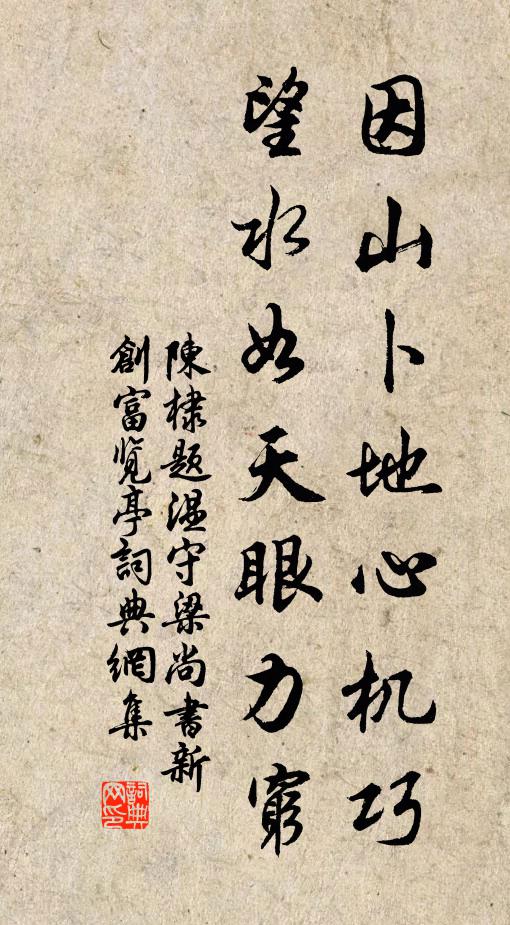 因山卜地心机巧
望水如天眼力窮
陳棣題温守梁尚書新
創富览亭詞典網集
詞典
网印